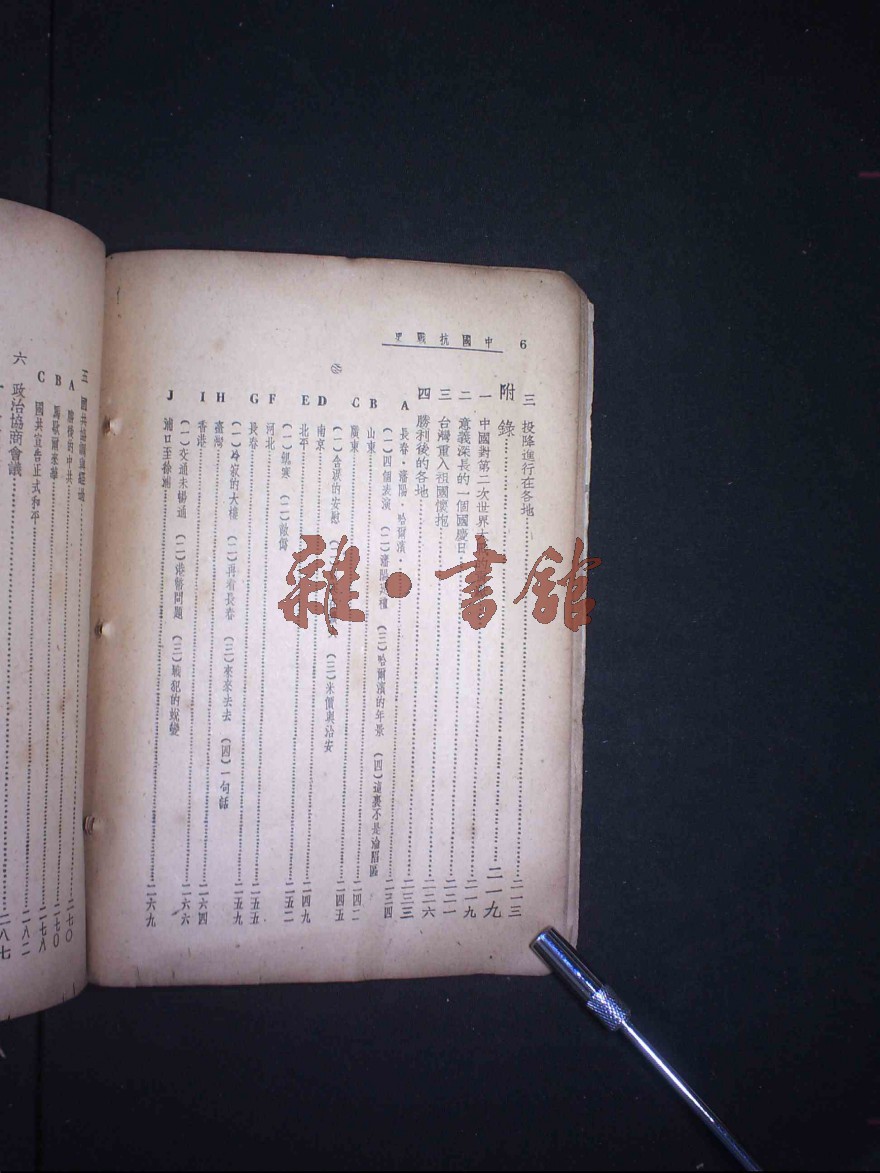 6 中國抗戰史
三 投降進行在各地……二一三
附錄……二一九
一 中國對第二次世界……二一九
二 意義深長的一個國慶日……二二一
三 台灣重入祖國懷抱……二二六
四 勝利後的各地……二三三
A 長春·瀋陽·哈爾濱……二三四
(一)四個表演 (二)瀋陽 (三)哈爾濱的年景 (四)這裏不是淪陷區
B 山東……二四二
C 廣東……二四五
(一)含淚的安慰 (三)米價與治安
D 南京……二四九
E 北平……二五二
(一)飢寒 (二)敵僞
F 河北……二五五
G 長春……二五九
(一)冷寂的大樓 (二)再看長春 (三)來來去去 (四)一句話
H 臺灣……二六四
I 香港……二六六
(一)交通未暢通 (二)港幣問題 (三)戰犯的蛻變
J 浦口至徐州……二六九
三 國共協
A 勝後的中共……二七〇
B 馬歇爾來華……二七〇
C 國共宣告正式和平……二七八
二八二
六 政治協商會議……二八七
雜·書館